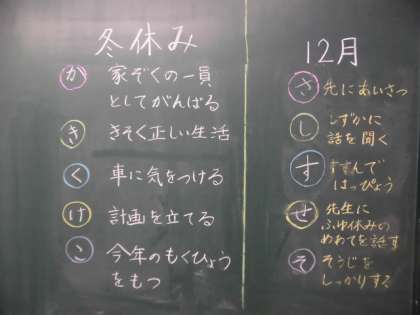 冬休み
が 家ぞくの一員
としてがんばる
き きそく正しい生活
く 車に気をつける
け 計画を立てる
こ 今年のもくひょう
をもつ
12月
さ 先にあいさつ
し しずかに
話を聞く
す すすんで
はっぴょう
せ 先生に
ふゆ休みの
めあてを話す
そ そうじを
しっかりする